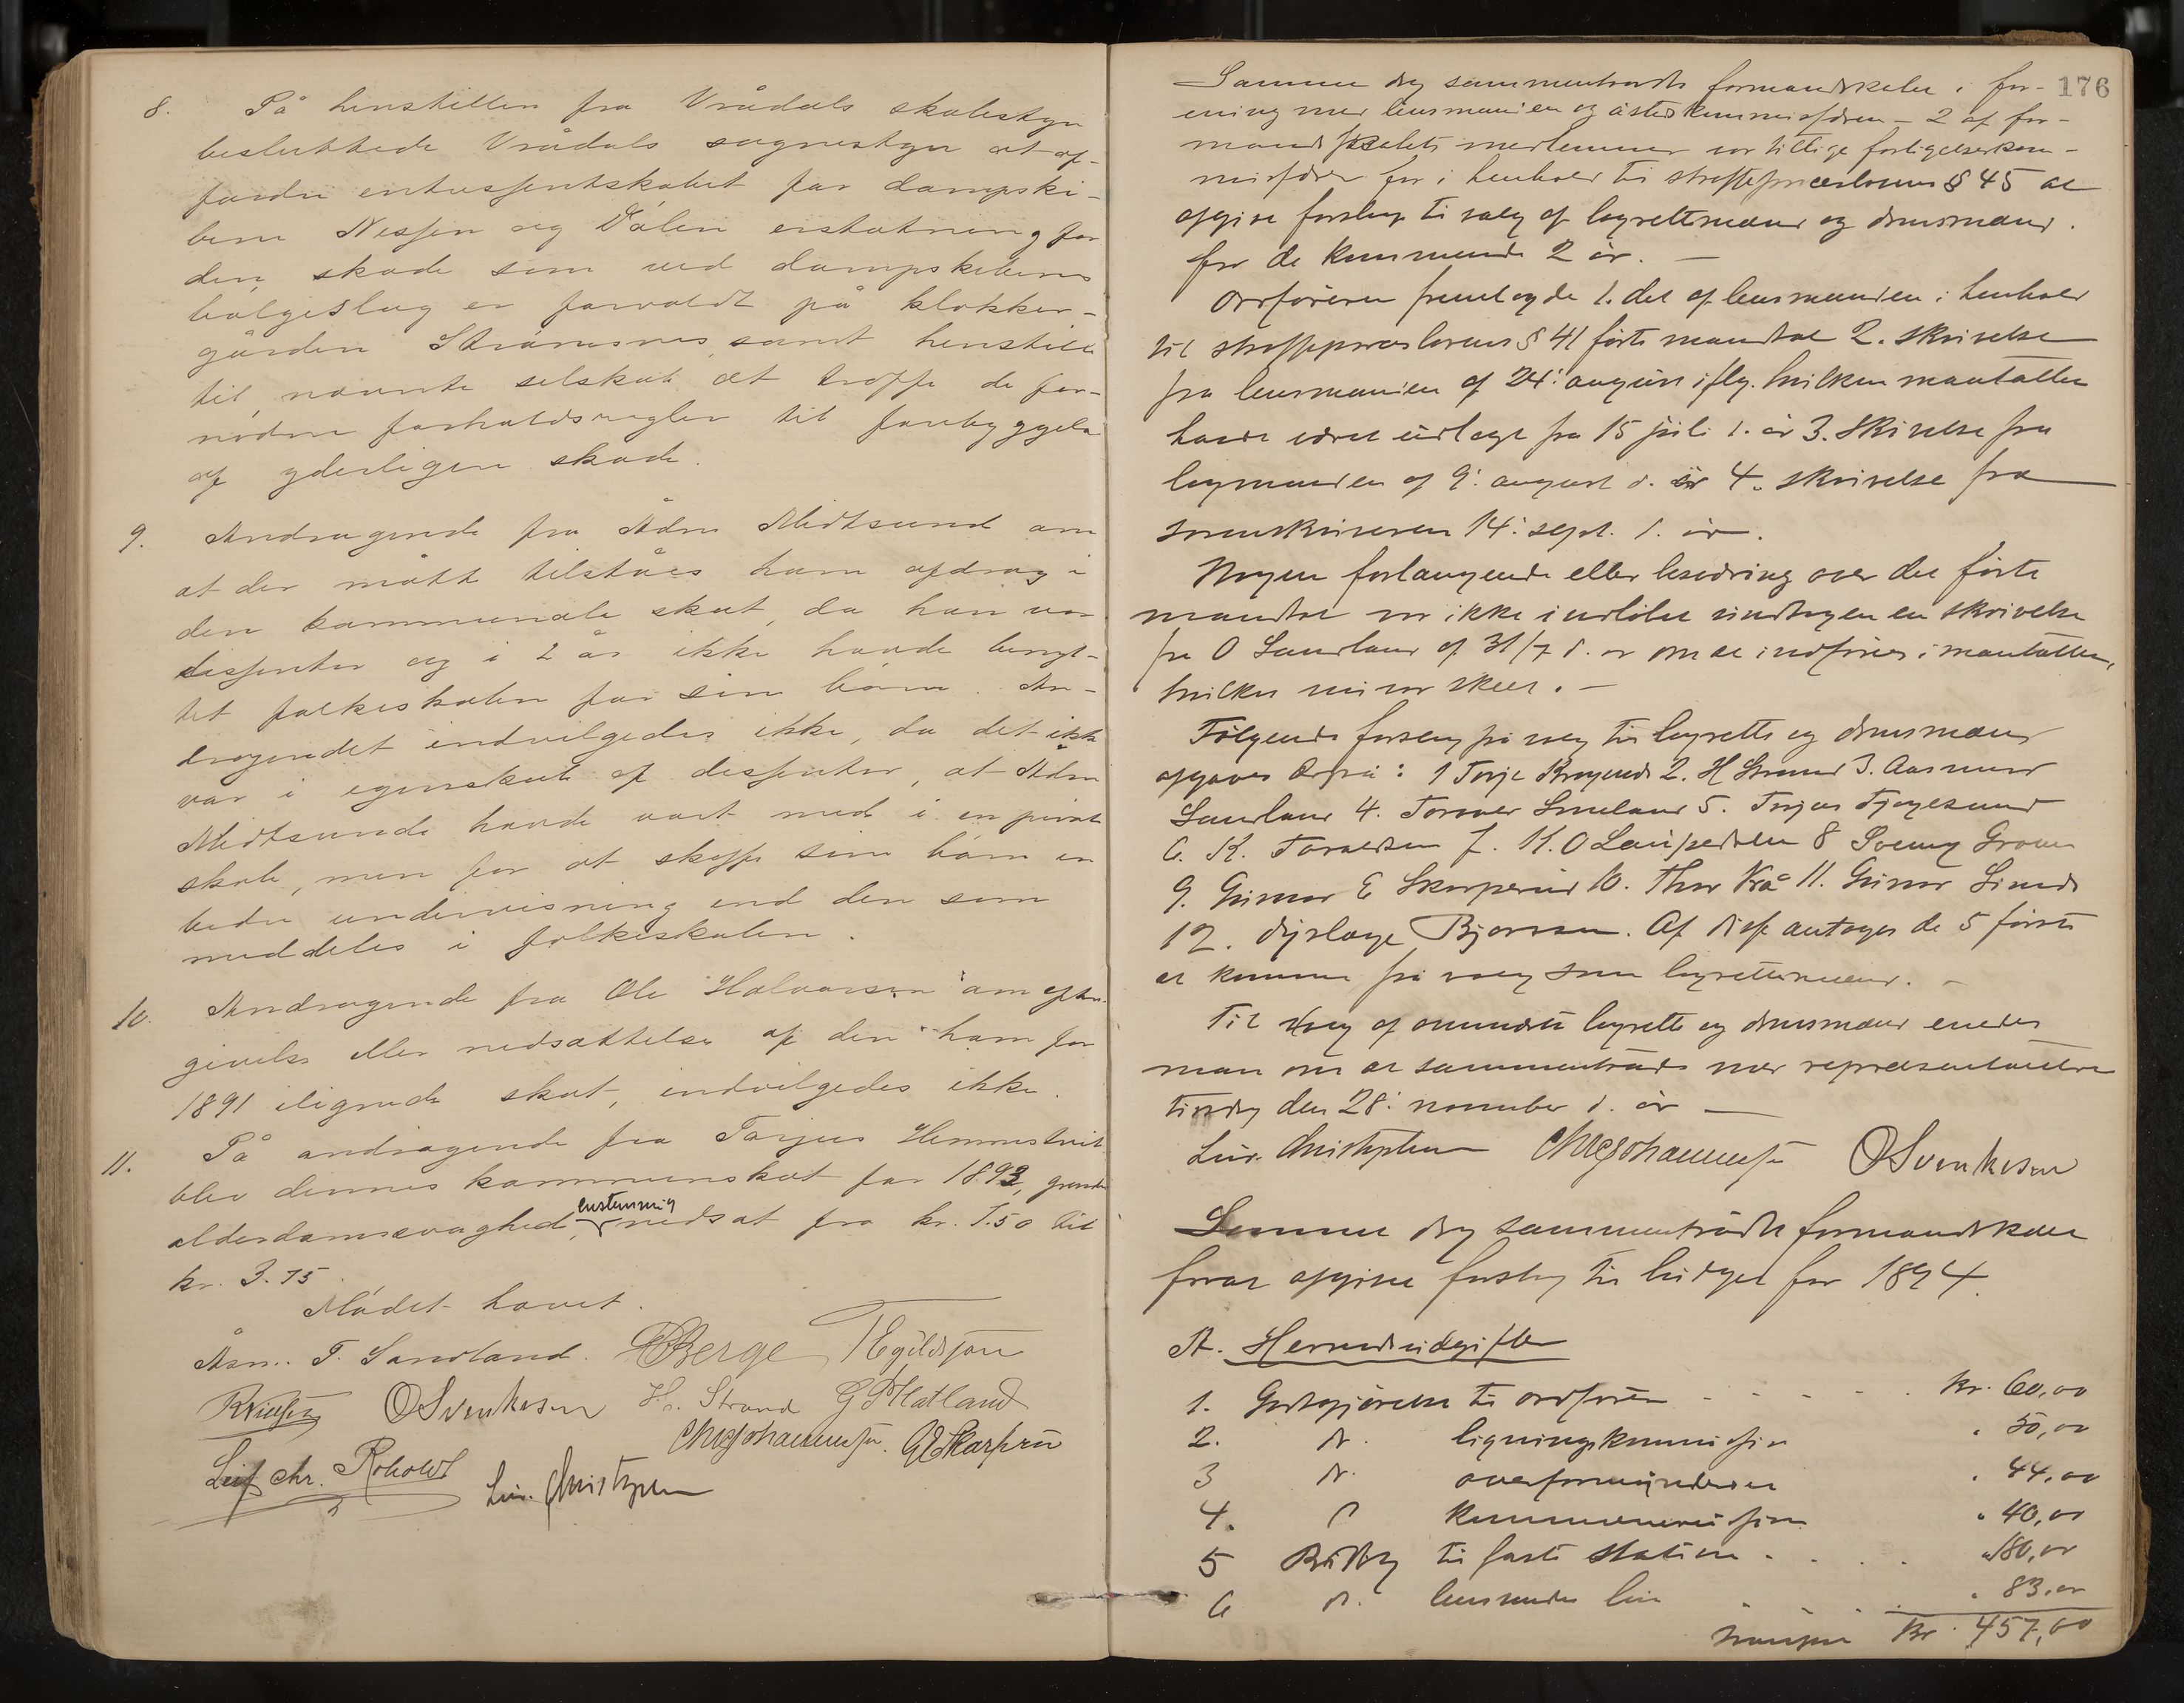 8. På henstillen fra Vrådals skolestyr
besluttede Vrådals sognestyr at af-
fordre entrepsentskabet for dampski-
bene Nesjen og Dalen erstatning for
den skade som ved dampskibenes
bølgeslag er forvoldt på klokker-
gården Strømsnes, samt henstille
til nævnte selskab at træffe de for-
nødne forholdsregler til forebyggelse
af yderligere skade.
9. Andragende fra Adne Midtsund om
at der måtte tilståes ham afdrag i
den kommunale skat, da han var
dissenter og i 2 år ikke havde benyt-
tet folkeskolen for sine børn. An-
dragendet indvilgedes ikke, da det ikke
var i egenskab af dissenter, at Adne
Midtsund havde vært med i en privat
skole, men for at skaffe sine børn en
bedre undervisning end den som
meddeles i folkeskolen.
10. Andragende fra Ole Halvorsen om efter-
givelse eller nedsættelse af den ham for
1891 ilignede skat, indvilgedes ikke.
11. På andragende fra Tarjus Hemmestveit
blev dennes kommuneskat for 1893, grundet
enstemmig
alderdomssvaghed, nedsat fra kr. 7.50 til
kr. 3.75
Mødet hævet.
Asm. T. Sandland. Berge T Egildsjon
OSvenkesen H. Strand G P Hatland
Chr Johannessen. G E Skarprü
Leif Chr. Roholdt Lür. Christophersen
176
Samme dag sammentraadte formandskabet i for-
ening med lensmanden og åstedskommisjæren - 2 af for-
mandskabets medlemmer var tillige forligelseskom-
misjærer for i henhold til straffeprocesslovens § 45 at
opgive forslag til valg af lagrettesmænd og domsmænd
for de kommende 2 år. —
Ordføreren fremlagde 1. det af lensmanden i henhold
til straffeproceslovens § 41 førte mandtal 2. skrivelse
fra lensmanden af 24' august ifølg. hvilken mantallet
havde været udlagt fra 15 juli d. år 3. Skrivelse fra
lagmanden af 9' august d. år 4. skrivelse fra
sorenskriveren 14' sept. d. år.
Nogen forlangende eller besværing over det førte
mandtal var ikke indløbet undtagen en skrivelse
fra O Sandland af 31/7 d. år om at indføres i mantallet,
hvilket nu var skeet. —
Følgende forslag på valg til lagrette og domsmænd
opgaves derpå: 1 Torje Kragende 2. H Strand 3. Aasmund
Sandland 4. Torever Smeland 5. Torjus Tjagesund
6. K. Taraldsen 7. K. O Laupedalen 8 Sveinung Groven
9. Gunnar E Skarperud 10. Thor Vrå 11. Gunnar Lunde
12. Dyrlæge Bjørnson. Af disse antages de 5 første
at komme på valg som lagrettesmænd. —
Til valg af omendte lagrette og domsmænd enedes
man om at sammentræde med repræsentanterne
tirsdag den 28' november d. år —
Lür. Christophersen Chr Johannessen OSvenkesen
Samme dag sammentraadte formandskabet
forat opgive forslag til budget for 1894.
A. Herredsudgifter
1. Godtgjørelse til ordfører - - - - Kr. 60,00
2. Do. ligningskommisjon " 50,00
3 Do. overformynderiet " 44,00
4. Do kommunerevisjon " 40,00
5 Bidrag til faste station - - - " 180,00
6 Do. lensmandens løn - - - " 83,00
transport Kr. 457,00